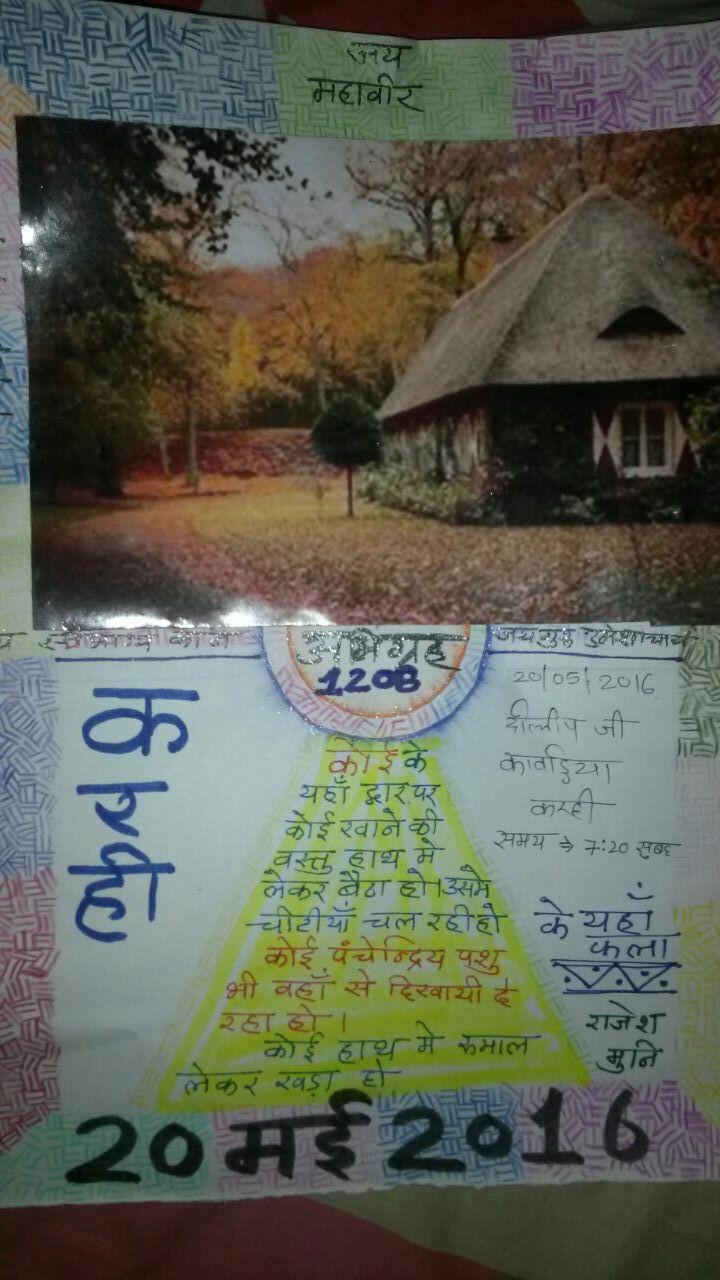 जय
महावीर
अभिग्रह
1208
जयगुरु उमेशाचार्य
20/05/2016
दीलीप जी
कावड़िया
करही
समय → 7:20 सुबह
के यहाँ
फला
राजेश
मुनि
कोई के
यहाँ द्वार पर
कोई खाने की
वस्तु हाथ मे
लेकर बैठा हो। उसमे
चीटीयाँ चल रही हो
कोई पंचेन्द्रिय पशु
भी वहाँ से दिखायी दे
रहा हो ।
कोई हाथ मे रुमाल
लेकर खड़ा हो
20 मई 2016